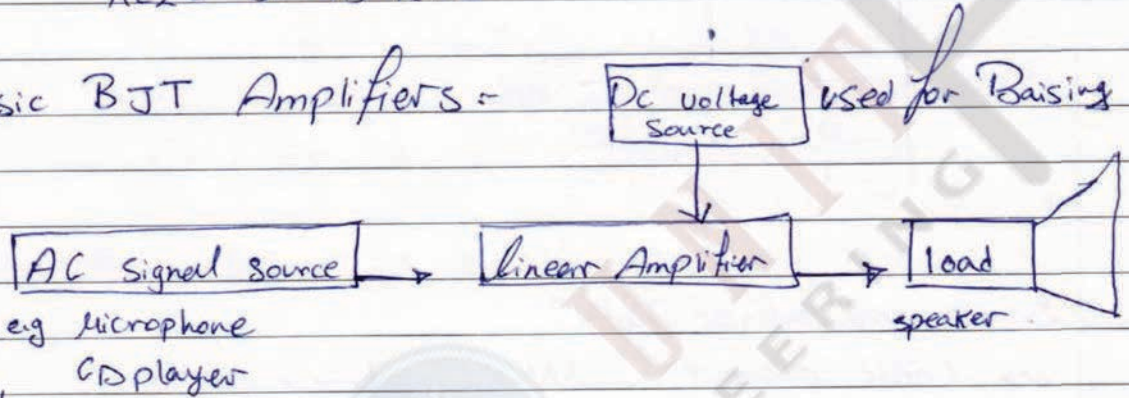 sic BJT Amplifiers :-
Dc voltage
Source
used for Baising
AC signal source
linear Amplifier
load
e.g Microphone
CD player
speaker
UNIT
EERING